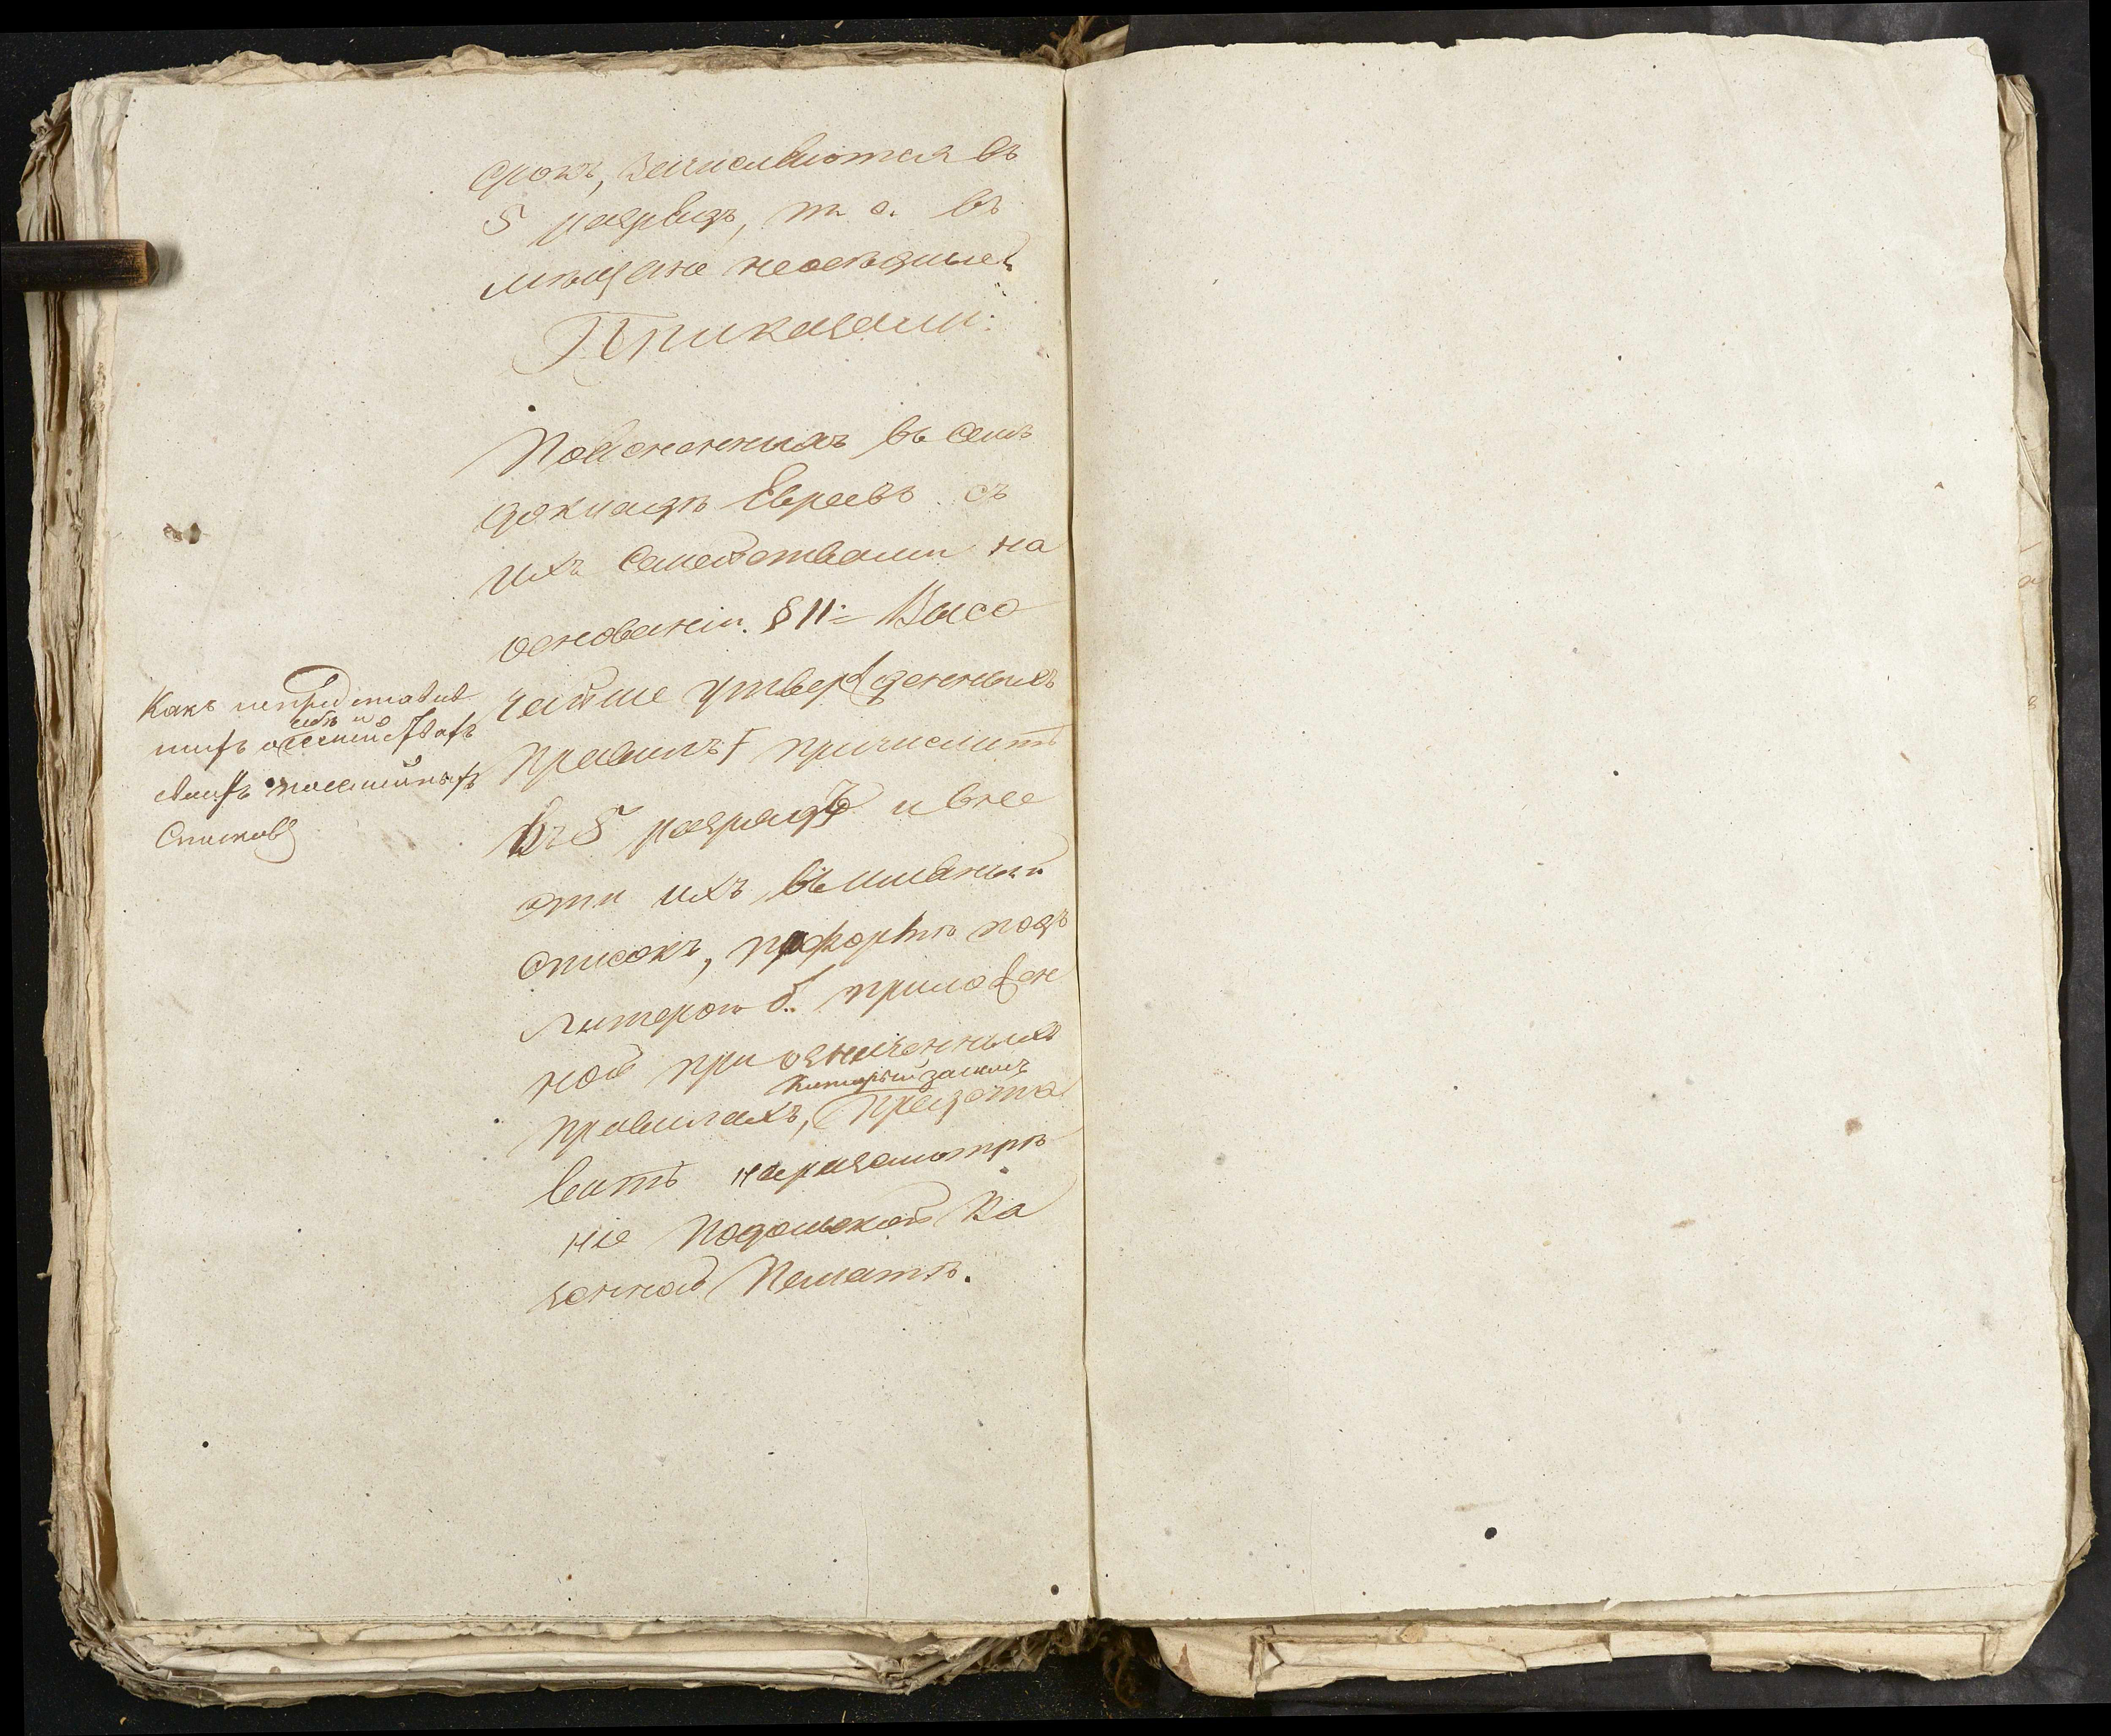 срокъ, зачисляются въ
5 разрядъ, т. е. въ
мѣщане неосѣдлые.
Приказали:
Поясненныхъ въ семъ
докладѣ Евреевъ съ
ихъ семействами на
основаніи § 11 = Высо
чайше утвержденныхъ
правилъ + причислить
въ 5 разрядъ и вне
сти ихъ въ имянный
списокъ, по формѣ подъ
литерою б. приложен
ной при означенныхъ
который за симъ
правилахъ, предста
вить на разсмотрѣ
ніе Подольской Ка
зенной Палатѣ.
Какъ непредставив
шихъ о себѣ и о семействахъ
своихъ посемейныхъ
списковъ